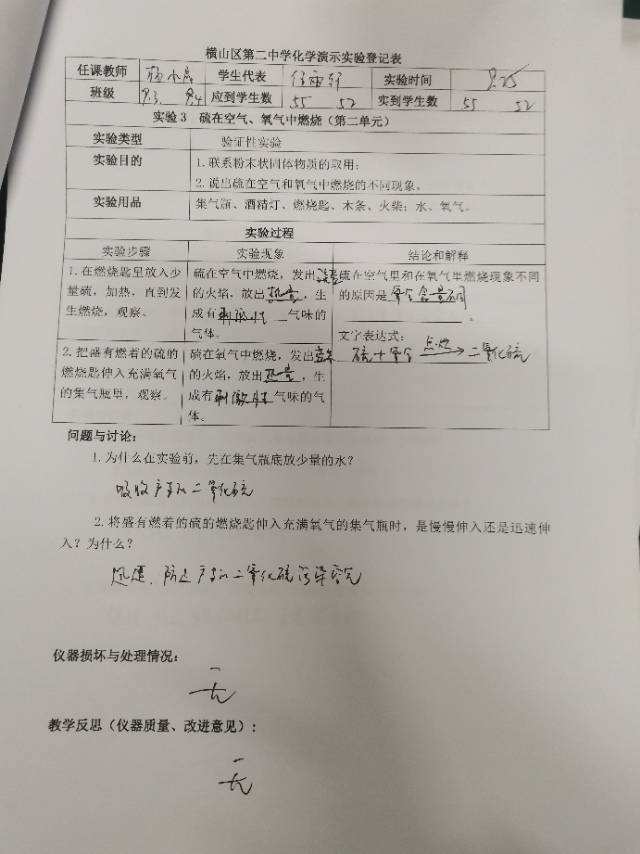 横山区第二中学化学演示实验登记表
任课教师 学生代表 实验时间 9.25
班级 9.3 9.4 应到学生数 55 52 实到学生数 55 52
实验3 硫在空气、氧气中燃烧（第二单元）
实验类型 验证性实验
实验目的 1.联系粉末状固体物质的取用;
2.说出硫在空气和氧气中燃烧的不同现象。
实验用品 集气瓶、酒精灯、燃烧匙、木条、火柴；水、氧气。
实验过程
实验步骤 实验现象 结论和解释
1.在燃烧匙里放入少量硫，加热，直到发生燃烧，观察。
硫在空气中燃烧，发出
的火焰，放出热量，生
成有刺激性气味的
气体。
硫在空气里和在氧气里燃烧现象不同
的原因是氧气含量不同
。
文字表达式：
硫+氧气 点燃→ 二氧化硫
2.把盛有燃着的硫的
燃烧匙伸入充满氧气
的集气瓶里，观察。
硫在氧气中燃烧，发出
的火焰，放出热量，生
成有刺激性气味的气
体。
问题与讨论：
1.为什么在实验前，先在集气瓶底放少量的水？
吸收产生的二氧化硫
2.将盛有燃着的硫的燃烧匙伸入充满氧气的集气瓶时，是慢慢伸入还是迅速伸
入？为什么？
迅速、防止产生的二氧化硫污染空气
仪器损坏与处理情况：
无
教学反思（仪器质量、改进意见）：
无